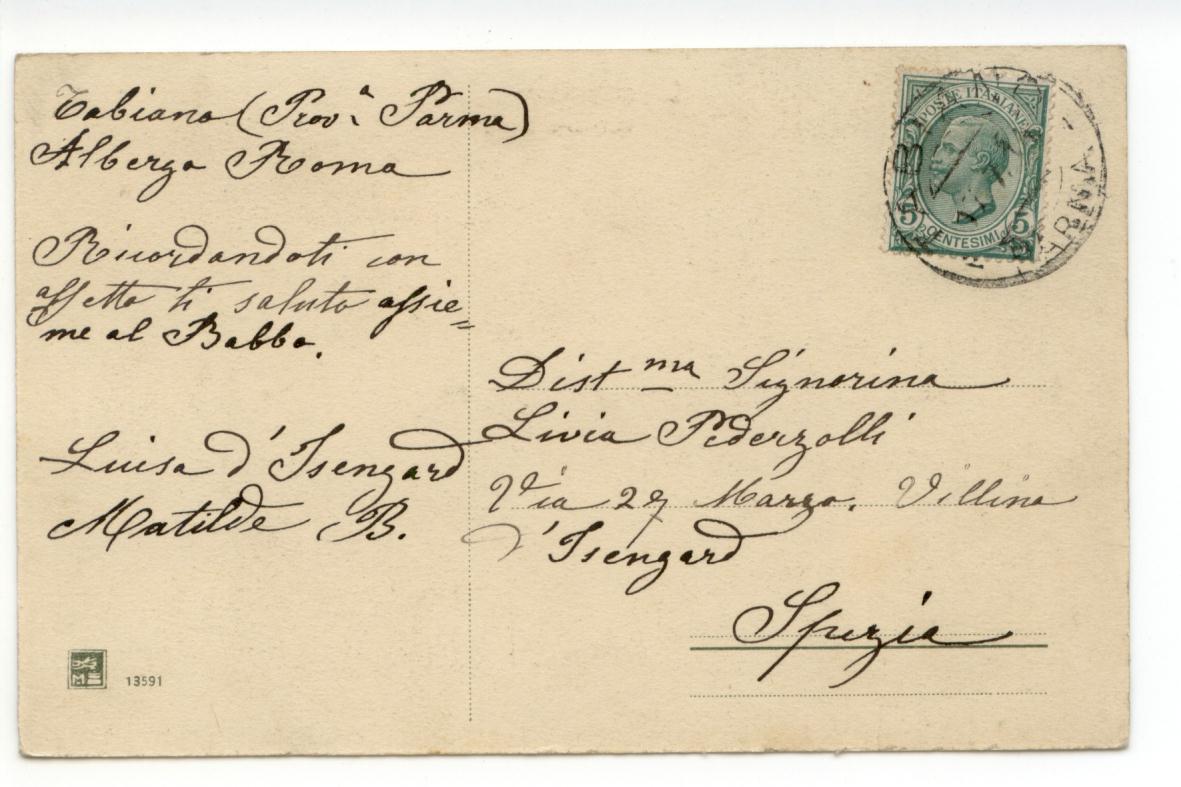 Tabiano (Prov.ª Parma)
Albergo Roma
Ricordandoti con
affetto ti saluto assie=
me al Babbo.
Luisa d'Isengard
Matilde B.
13591
POSTE ITALIANE
5 CENTESIMI 5
PARMA
Dist.ma Signorina
Livia Pederzolli
Via 27 Marzo. Villino
d'Isengard
Spezia